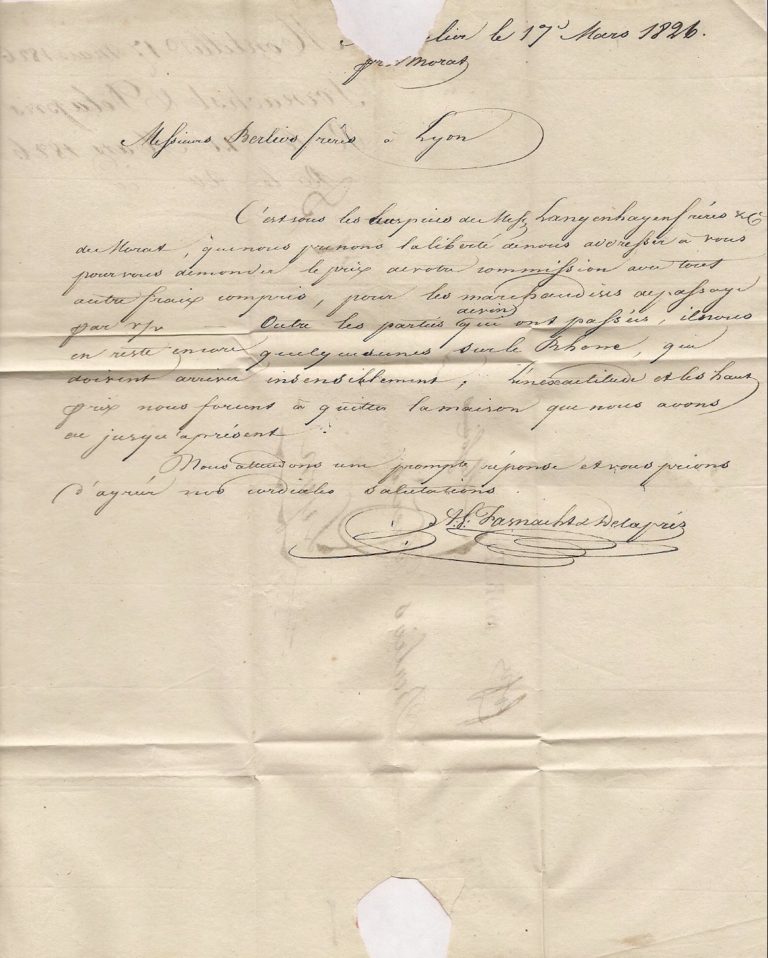 elier le 17 Mars 1826.
près Morat
Messieurs Berlios frères à Lyon
C'est sous les auspices de Mess. Langenhagen frères & C
de Morat, que nous prenons la liberté de nous addresser à vous
pour vous demander le prix de votre commission avec tout
autre fraix compris, pour les marchandises de passage
par v/v Outre les parties de vin qui ont passées, il nous
en reste encore quelques unes sur le Rhone, qui
doivent arriver insensiblement, L'inexactitude et les haut
prix nous forcent à quitter la maison que nous avons
eu jusqu'aprésent.
Nous attendons une prompte réponse et vous prions
d'agréér nos cordiales salutations.
Fasnacht & Delaprés